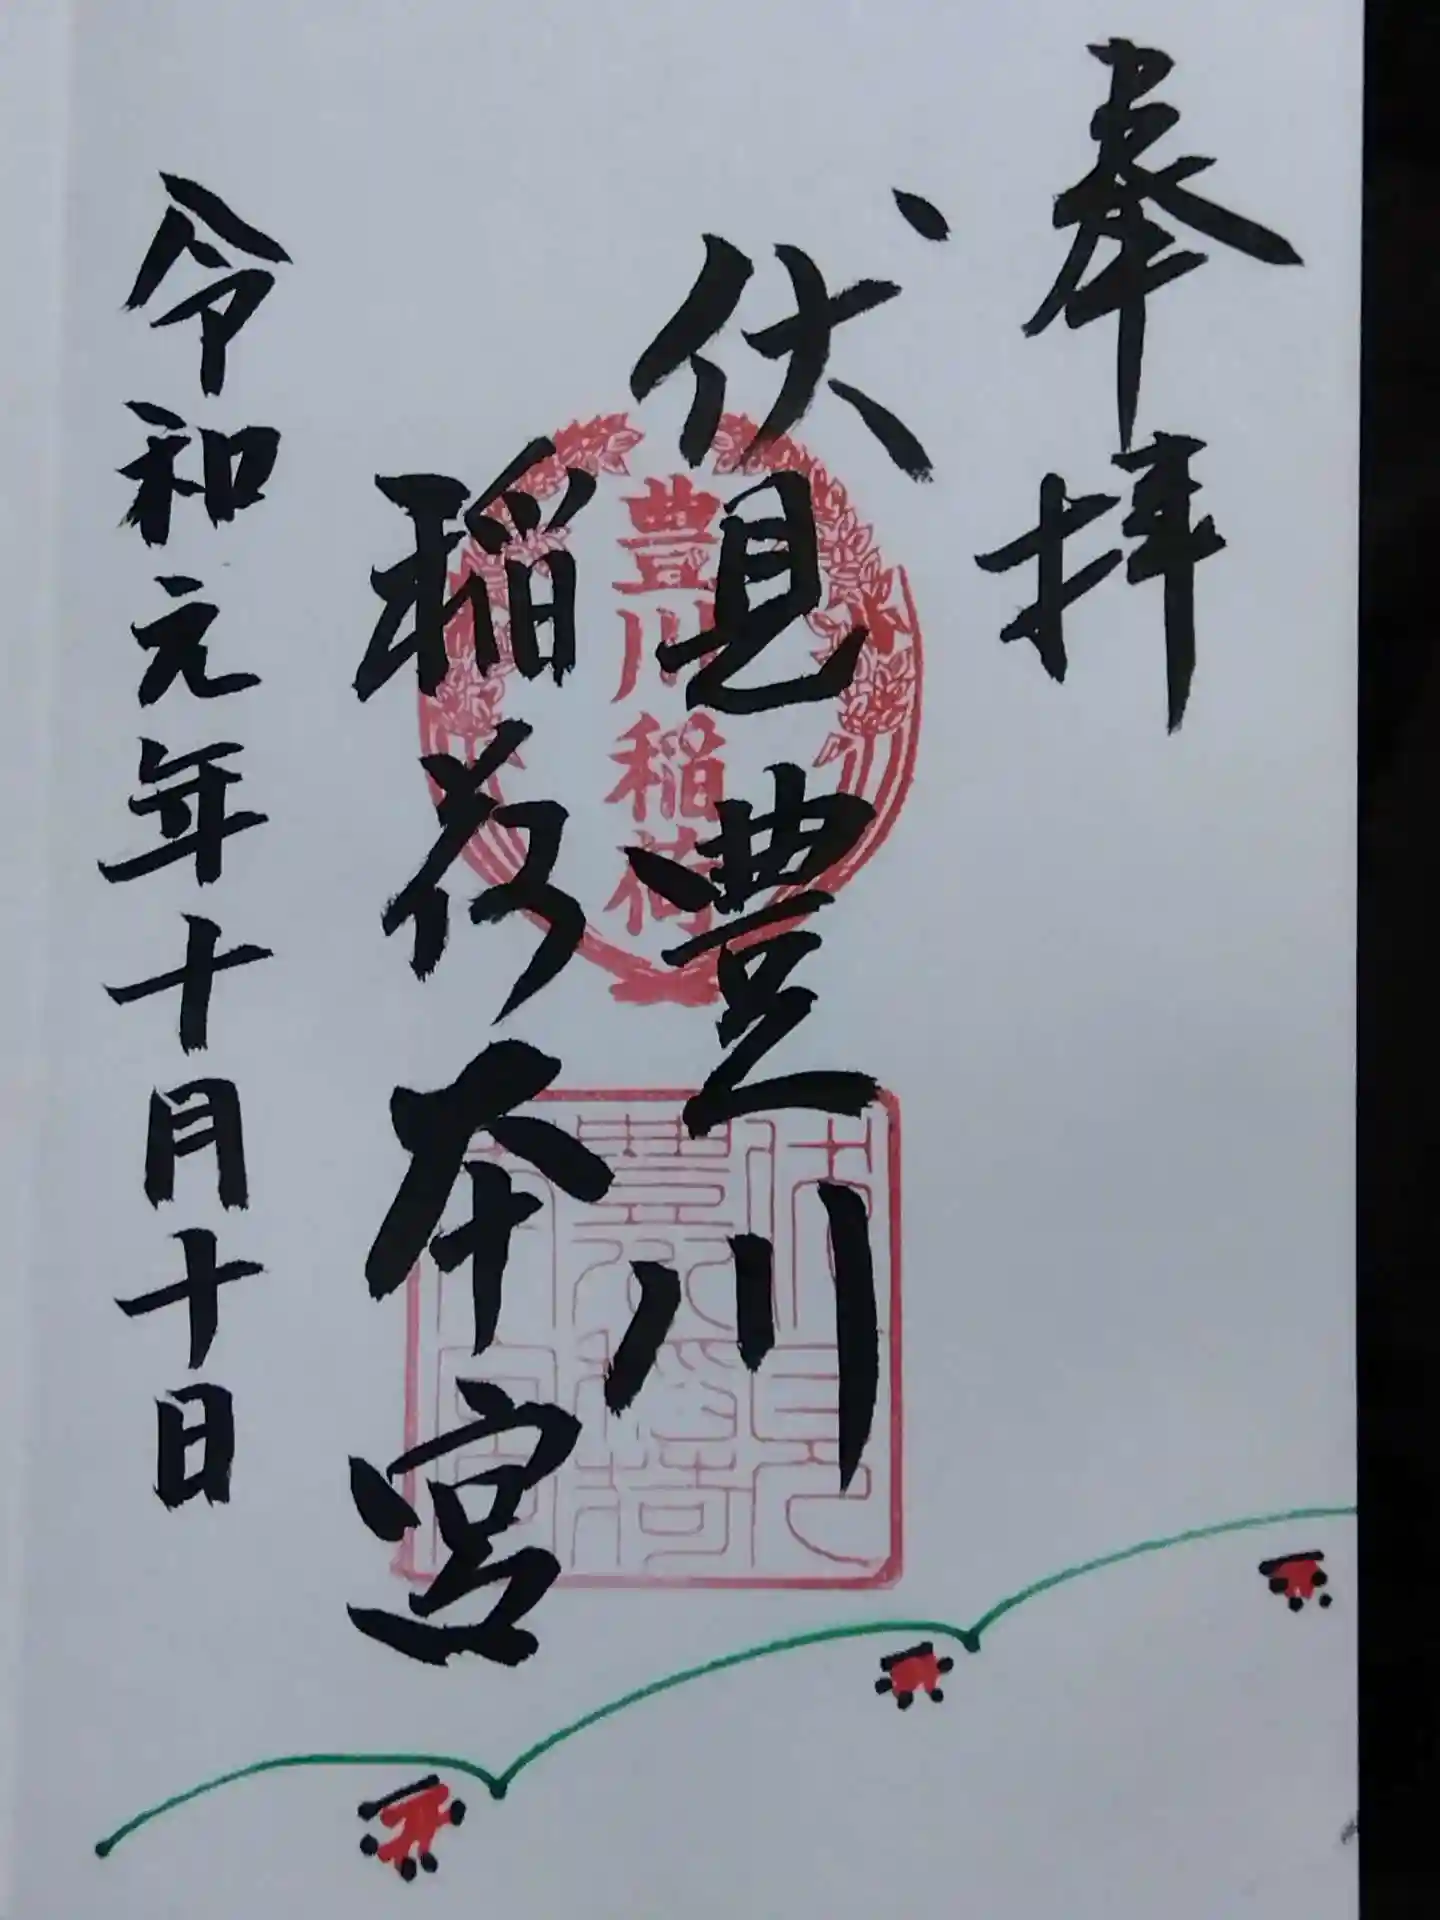 奉拝
伏見豊川
稲荷本宮
令和元年十月十日
豊川稲荷
伏見
豊川稲荷
本宮